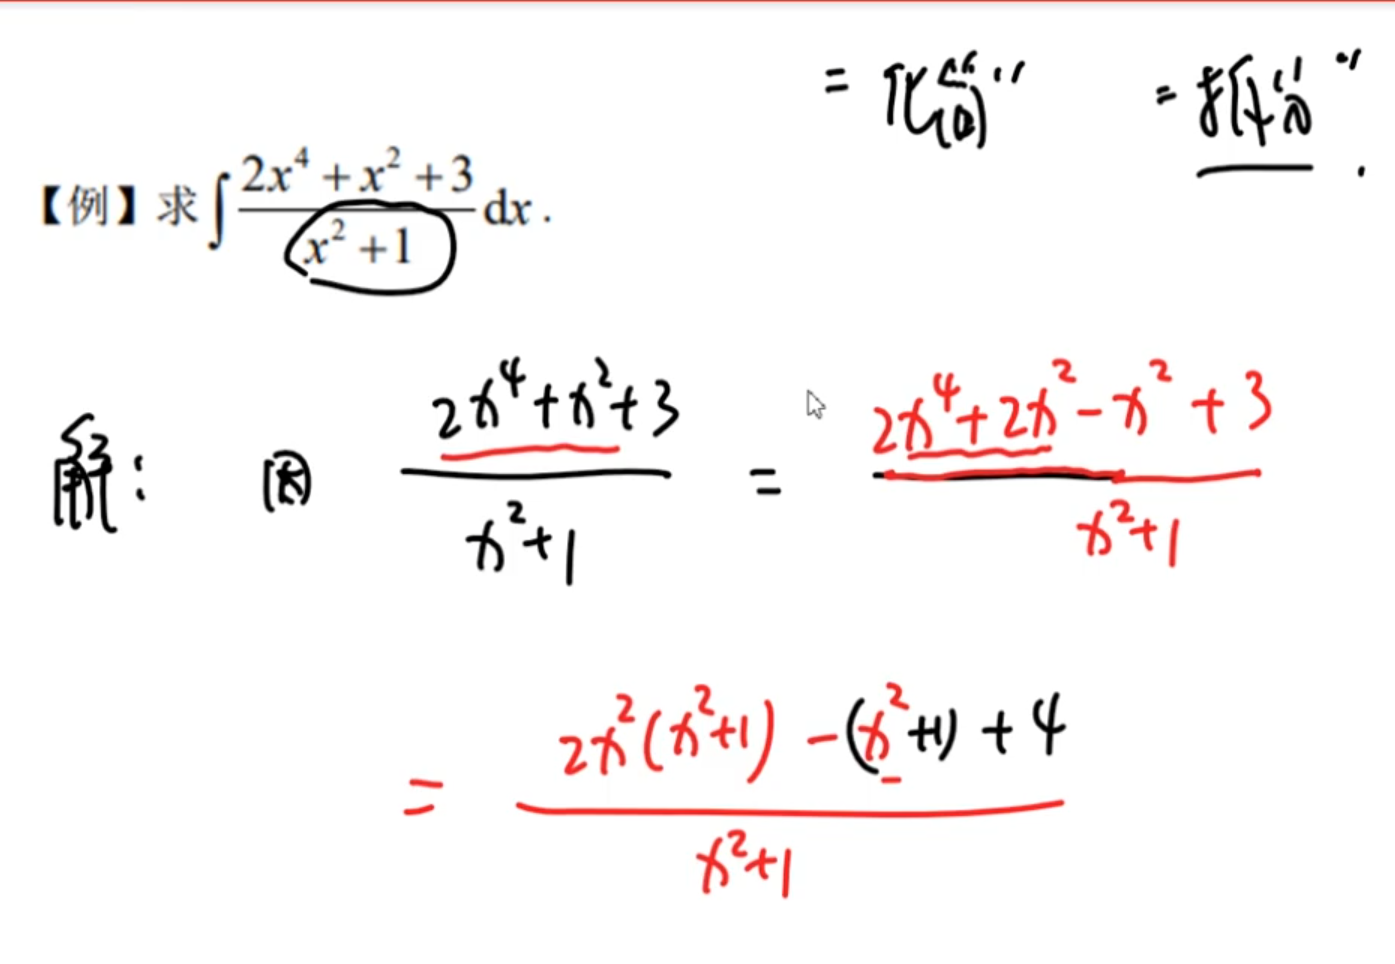 = 化简 = 拆分
【例】求∫(2x⁴+x²+3)/(x²+1)dx.
解: 因 (2x⁴+x²+3)/(x²+1) = (2x⁴+2x²-x²+3)/(x²+1)
= (2x²(x²+1)-(x²+1)+4)/(x²+1)